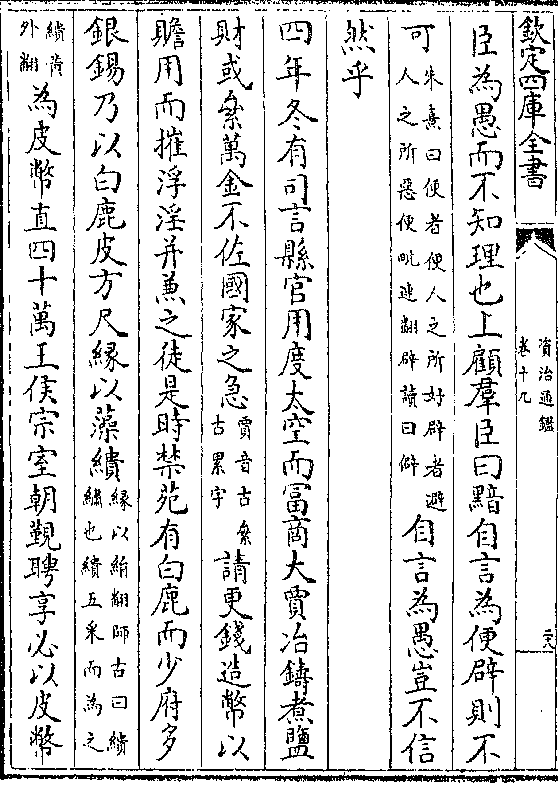 欽定四庫全書
資治通鑑
卷十九
二八
臣為愚而不知理也上顧羣臣曰黯自言為便辟則不
可朱熹曰便者便人之所好辟者避人之所惡便毗連翻辟讀曰僻自言為愚豈不信
然乎
四年冬有司言縣官用度太空而富商大賈冶鑄煮鹽
財或絫萬金不佐國家之急賈音古絫古累字請更錢造幣以
贍用而摧浮淫并兼之徒是時禁苑有白鹿而少府多
銀錫乃以白鹿皮方尺緣以藻繢緣以絹翻師古曰繢繡也繢五采而為之繢黄外翻
為皮幣直四十萬王侯宗室朝覲聘享必以皮幣